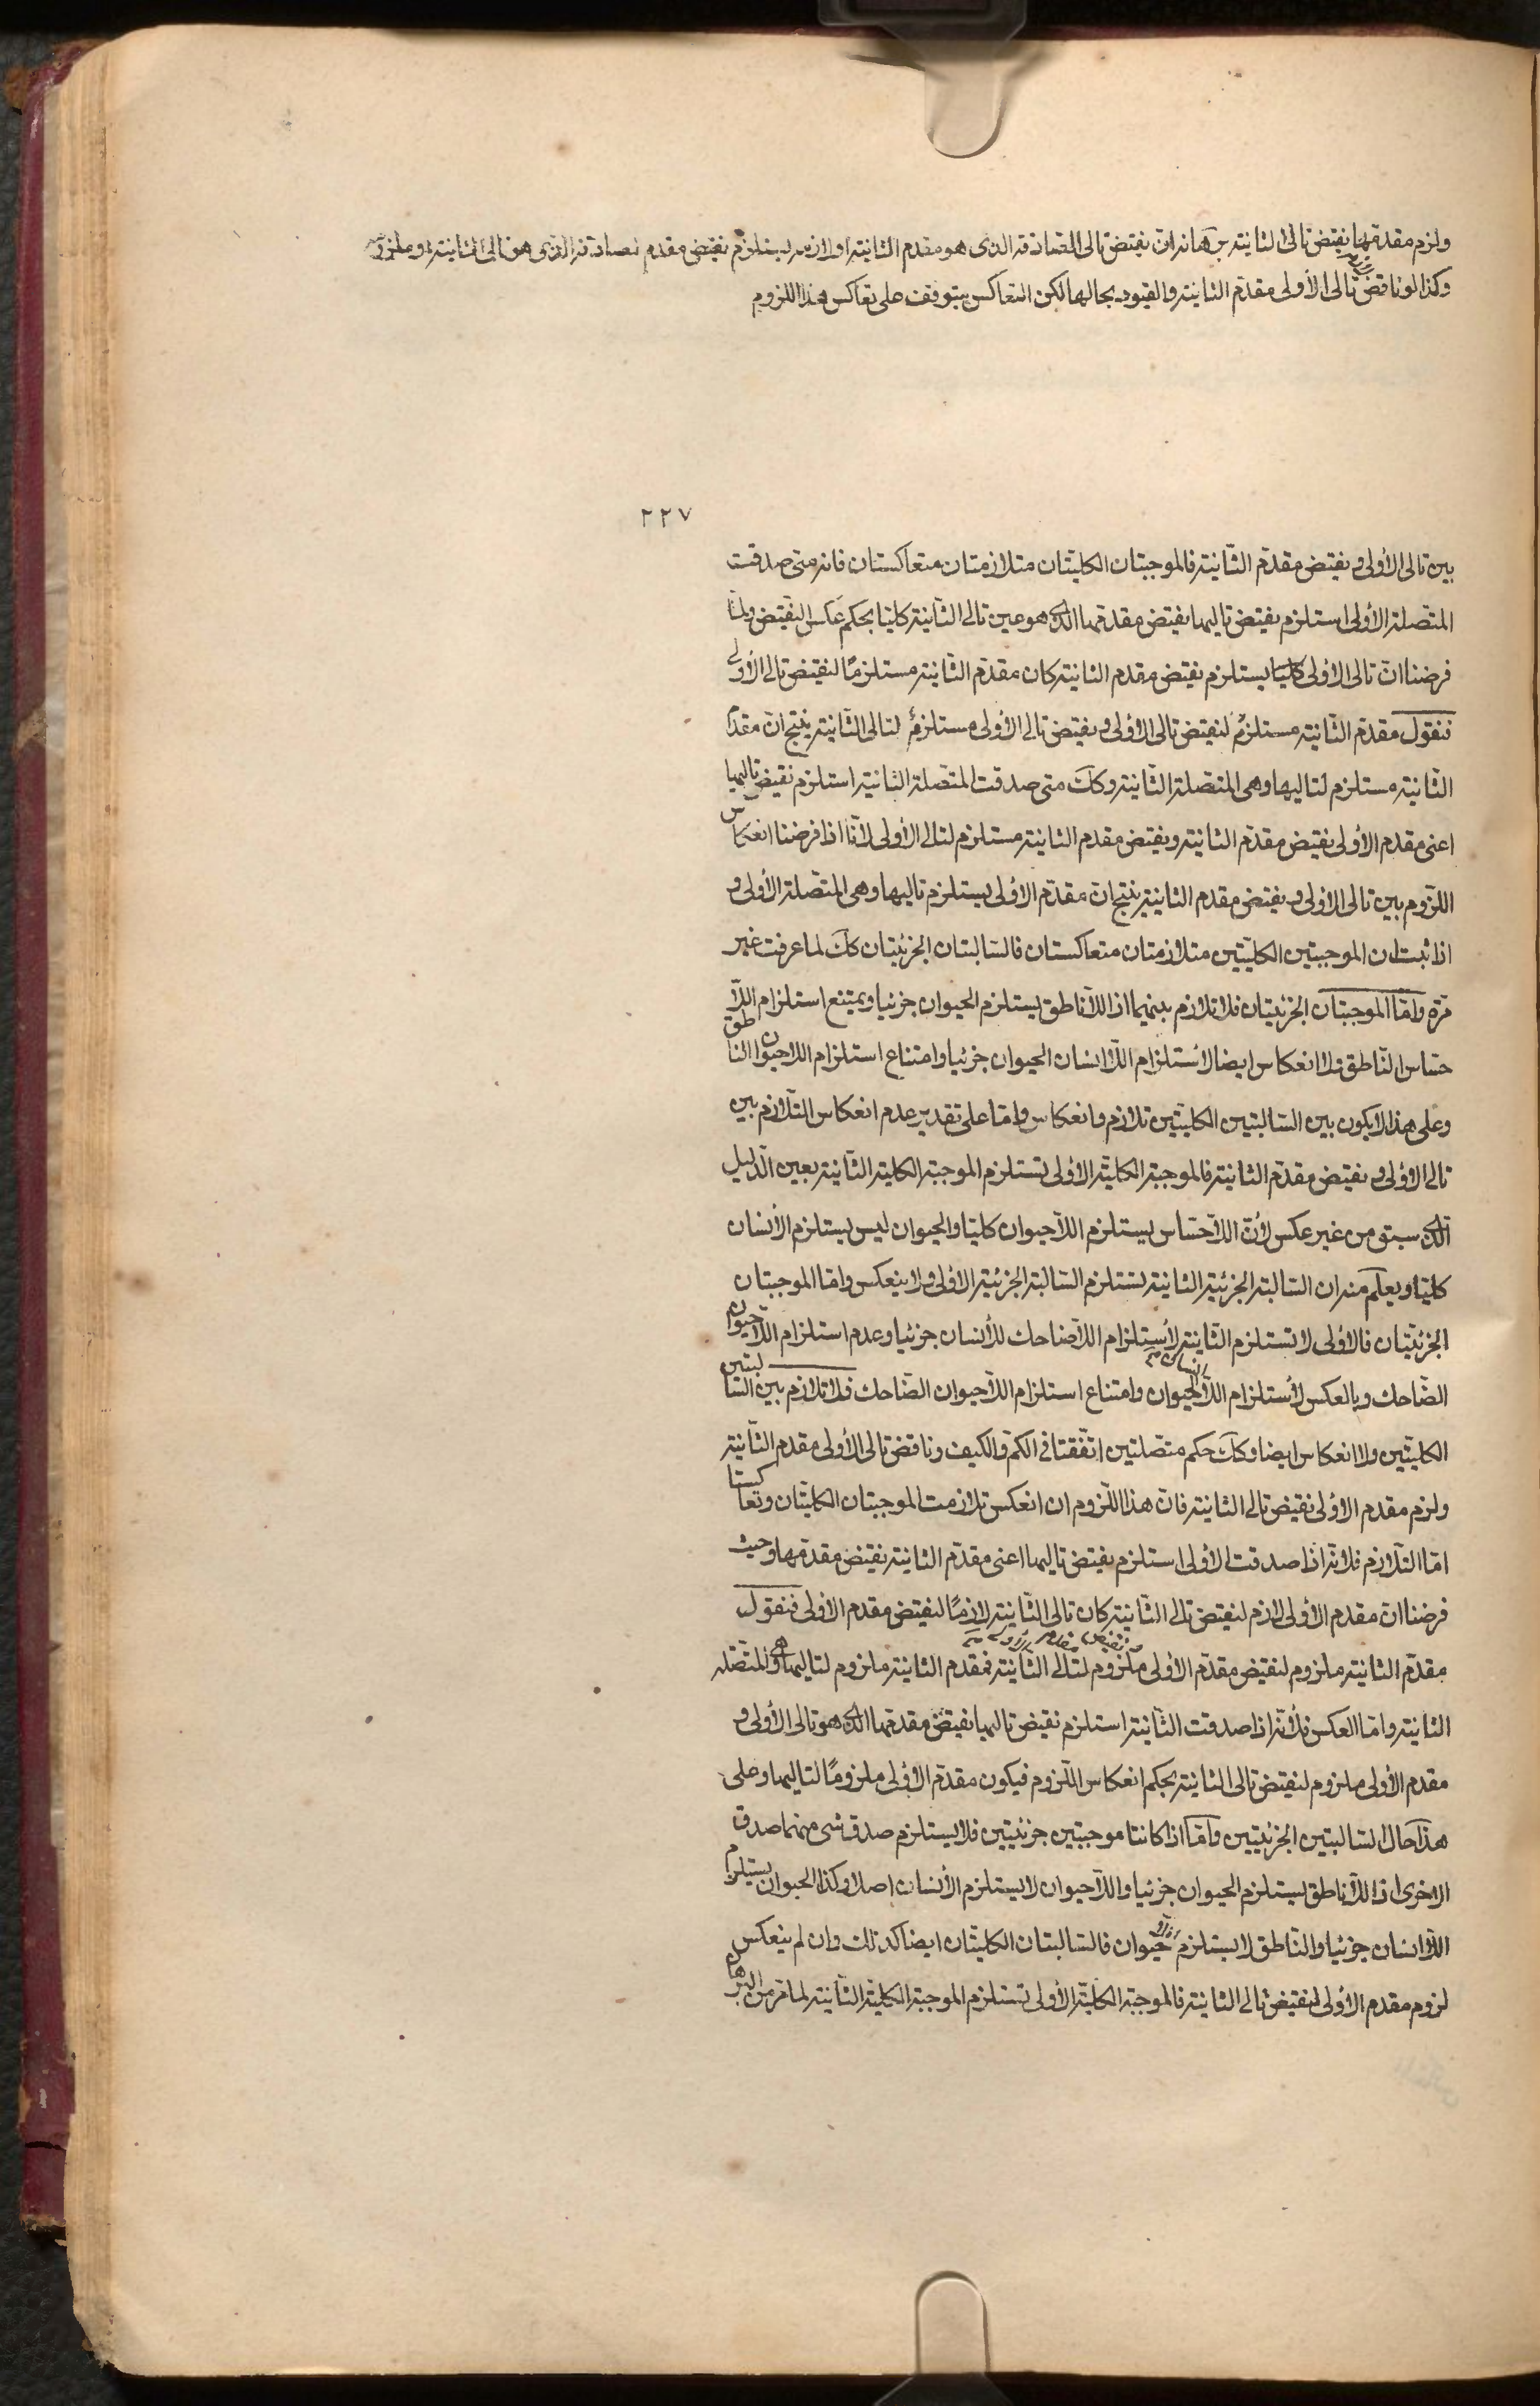 ولزم مقدمها نقيض تالى الثانية برهانه ان نقيض تالى الصادقة الذى هو مقدم الثانية او لازمه يستلزم نقيض مقدم الصادقة الذى هو تالى الثانية او ملزومه
وكذا لو ناقض تالى الأولى مقدم الثانية والقيود بحالها لكن التعاكس يتوقف على تعاكس هذا اللزوم
٢٢٧
بين تالى الأولى ونقيض مقدم الثانية فالموجبتان الكليتان متلازمتان متعاكستان فانه متى صدقت
المتصلة الأولى استلزم نقيض تاليها نقيض مقدمها الذى هو عين تالى الثانية كليا بحكم عكس النقيض ولما
فرضنا ان تالى الأولى كليا يستلزم نقيض مقدم الثانية كان مقدم الثانية مستلزمًا لنقيض تالى الأولى
فنقول مقدم الثانية مستلزم لنقيض تالى الأولى ونقيض تالى الأولى مستلزم لتالى الثانية ينتج ان مقدم
الثانية مستلزم لتاليها وهى المتصلة الثانية وكك متى صدقت المتصلة الثانية استلزم نقيض تاليها
اعنى مقدم الأولى نقيض مقدم الثانية ونقيض مقدم الثانية مستلزم لتالى الأولى لانا اذا فرضنا انعكاس
اللزوم بين تالى الأولى ونقيض مقدم الثانية ينتج ان مقدم الأولى يستلزم تاليها وهى المتصلة الأولى و
اذا ثبت ان الموجبتين الكليتين متلازمتان متعاكستان فالسالبتان الجزئيتان كك لما عرفت غير
مرة واما الموجبتان الجزئيتان فلا تلازم بينهما اذ اللاناطق يستلزم الحيوان جزئيا ويمتنع استلزام اللا
حساس الناطق فلا انعكاس ايضا لاستلزام اللاانسان الحيوان جزئيا وامتناع استلزام اللاحيوان الناطق
وعلى هذا لا يكون بين السالبتين الكليتين تلازم وانعكاس واما على تقدير عدم انعكاس التلازم بين
تالى الأولى ونقيض مقدم الثانية فالموجبة الكلية الأولى تستلزم الموجبة الكلية الثانية بعين الدليل
الذى سبق من غير عكس لأن اللاحساس يستلزم اللاحيوان كليا والحيوان ليس يستلزم الأنسان
كليا ويعلم منه ان السالبة الجزئية الثانية تستلزم السالبة الجزئية الأولى ولا ينعكس واما الموجبتان
الجزئيتان فالأولى لا تستلزم الثانية لأستلزام اللاضاحك للأنسان جزئيا وعدم استلزام اللاحيوان
الضاحك وبالعكس لأستلزام اللاانسان الحيوان وامتناع استلزام اللاحيوان الضاحك فلا تلازم بين السالبتين
الكليتين ولا انعكاس ايضا وكك حكم متصلتين اتفقتا فى الكم والكيف وناقض تالى الأولى مقدم الثانية
ولزم مقدم الأولى نقيض تالى الثانية فان هذا اللزوم ان انعكس تلازمت الموجبتان الكليتان وتعاكستا
اما التلازم فلانه اذا صدقت الأولى استلزم نقيض تاليها اعنى مقدم الثانية نقيض مقدمها وحيث
فرضنا ان مقدم الأولى لازم لنقيض تالى الثانية كان تالى الثانية لازمًا لنقيض مقدم الأولى فنقول
مقدم الثانية ملزوم لنقيض مقدم الأولى ونقيض مقدم الأولى ملزوم لتالى الثانية فمقدم الثانية ملزوم لتاليها وهى المتصلة
الثانية واما العكس فلأنه اذا صدقت الثانية استلزم نقيض تاليها نقيض مقدمها الذى هو تالى الأولى و
مقدم الأولى ملزوم لنقيض تالى الثانية بحكم انعكاس اللزوم فيكون مقدم الأولى ملزومًا لتاليها وعلى
هذا حال السالبتين الجزئيتين واما اذا كانتا موجبتين جزئيتين فلا يستلزم صدق شى منهما صدق
الاخرى اذ اللاناطق يستلزم الحيوان جزئيا واللاحيوان لا يستلزم الأنسان اصلا وكذا الحيوان يستلزم
اللاانسان جزئيا والناطق لا يستلزم اللاحيوان فالسالبتان الكليتان ايضا كذلك وان لم ينعكس
لزوم مقدم الأولى لنقيض تالى الثانية فالموجبة الكلية الأولى تستلزم الموجبة الكلية الثانية لما مر من البرهان